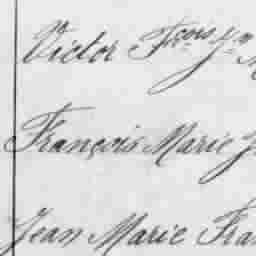 Victor Fçois Jn M
François Marie J
Jean Marie Fra